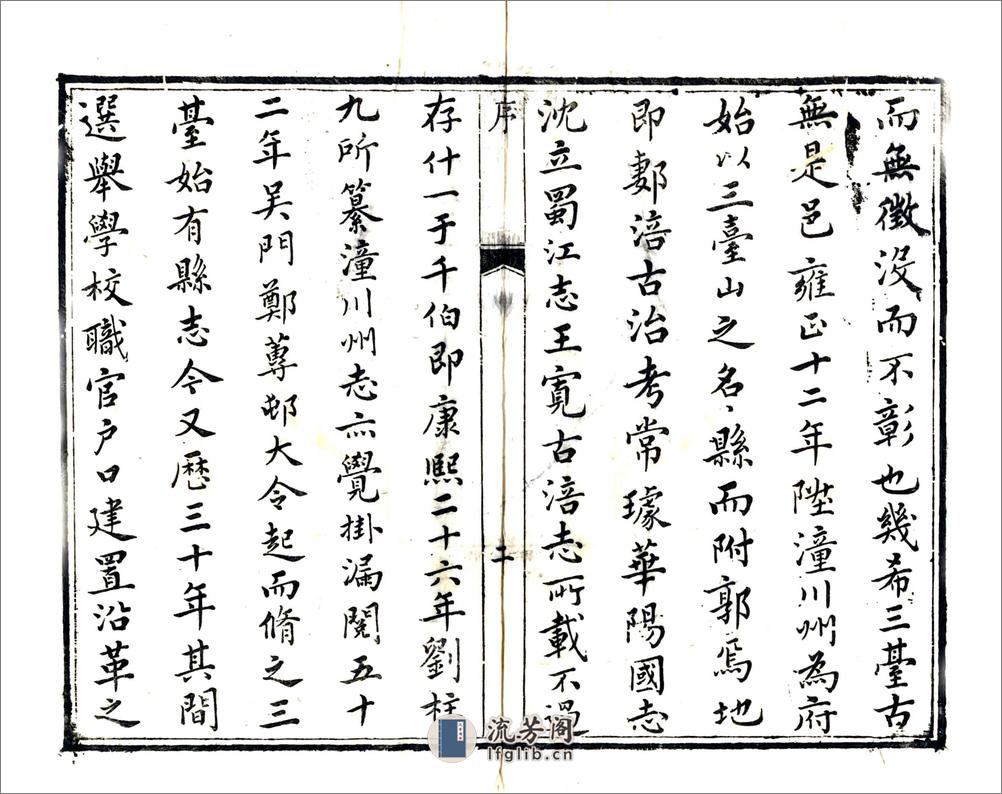 而無徵沒而不彰也幾希三臺古
無是邑雍正十二年陞潼川州為府
始以三臺山之名、縣而附郭焉地
即郪涪古治考常璩華陽國志
沈立蜀江志王寬古涪志所載不過
序 二
存什一于千伯即康熙二十六年劉柱
九所纂潼川州志亦覺掛漏閱五十
二年吳門鄭蓴邨大令起而脩之三
臺始有縣志今又歷三十年其間
選舉學校職官戶口建置沿革之
流芳阁
lfglib.cn